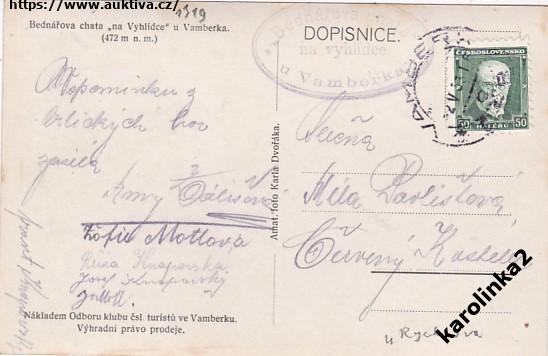 https://www.auktiva.cz/
1319
Bednářova chata „na Vyhlídce" u Vamberka.
(472 m n. m.)
DOPISNICE.
Bednářova
na vyhlídce
u Vamberka
ČESKOSLOVENSKO
50 HALÉŘŮ 50
Vzpomínku z
Orlických hor
zasílá
Slečna
Míla Pavlištová
Červený Kostelec
Žofie Motlová
Růža Knapovská
Josef Knapovský
u Rychnova
Amat. foto Karla Dvořáka.
Nákladem Odboru klubu čsl. turistů ve Vamberku.
Výhradní právo prodeje.
karolinka2